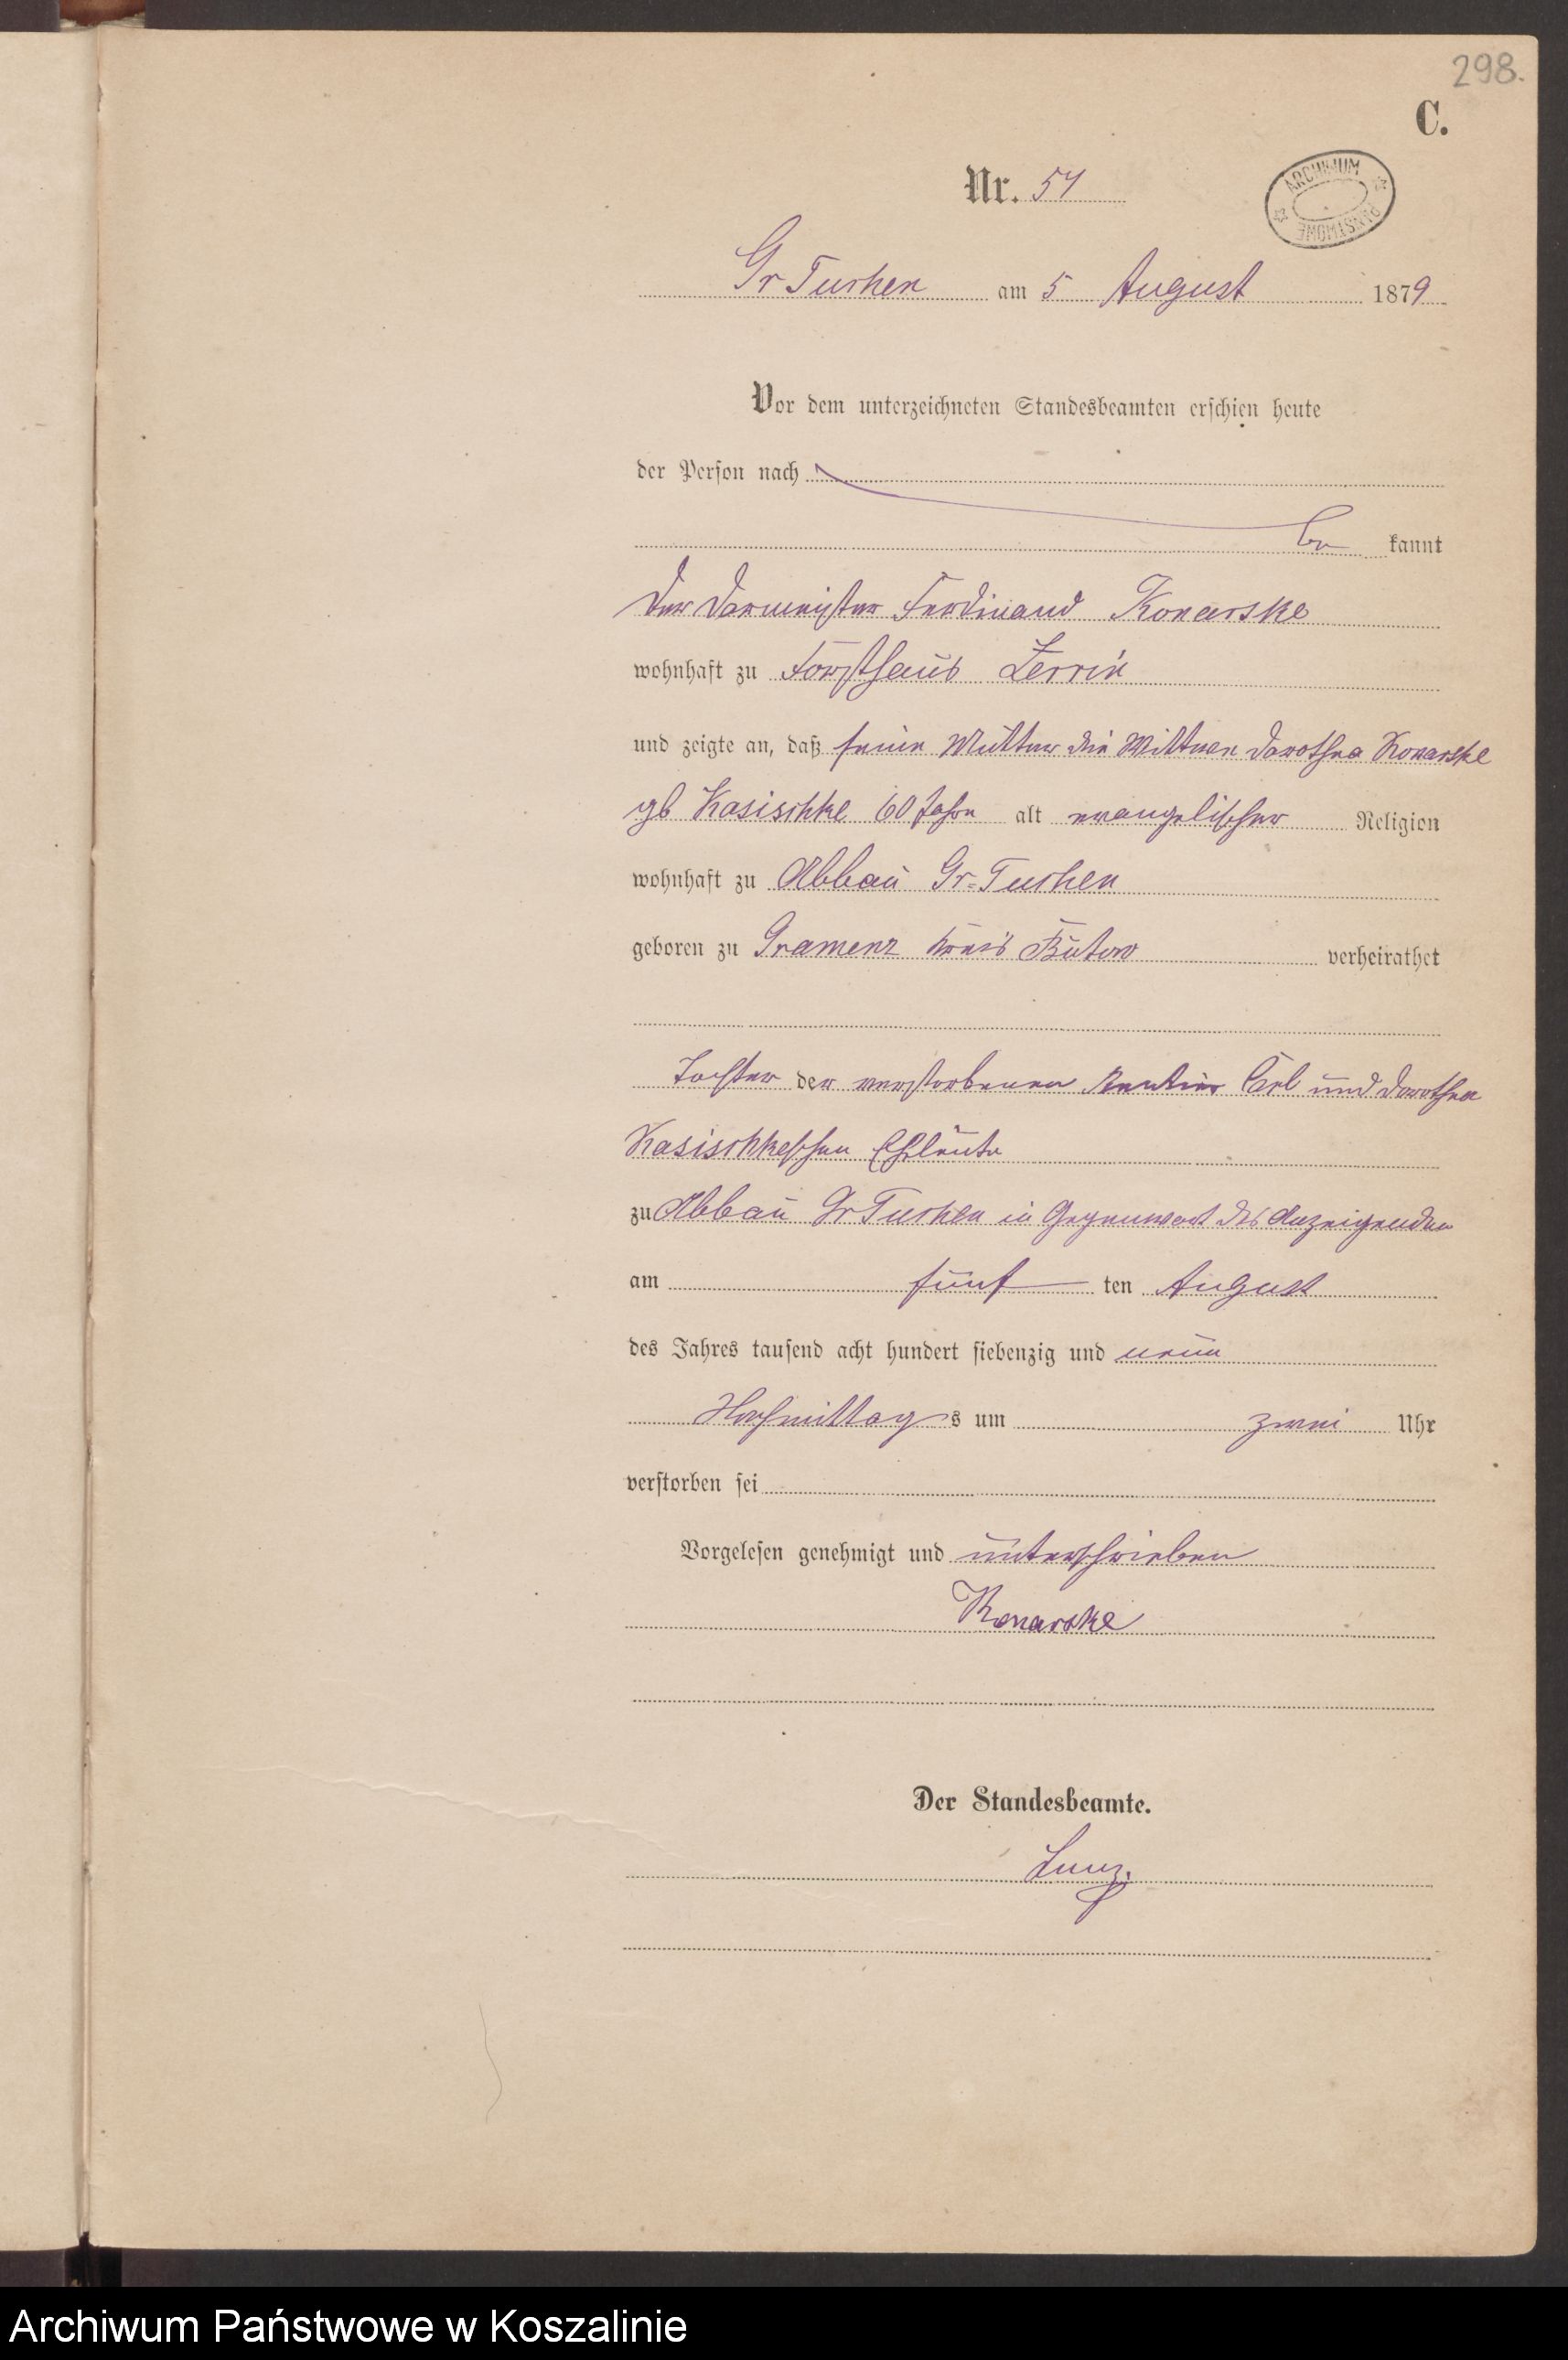 298.
C.
Nr. 54
ARCHIWUM PAŃSTWOWE
Gr Tuchen am 5 August 1879
Vor dem unterzeichneten Standesbeamten erschien heute
der Person nach
be kannt
der Ferdinand Konarske
wohnhaft zu Forsthaus Zerrin
und zeigte an, daß seine Mutter die Wittwe Dorothea Konarske
gb Kasischke 60 Jahre alt evangelischer Religion
wohnhaft zu Abbau Gr-Tuchen
geboren zu Gramenz Kreis Bütow verheirathet
Tochter der verstorbenen Rentier Carl und Dorothea
Kasischkeschen Eheleute
zu Abbau Gr Tuchen in Gegenwart des Anzeigenden
am fünf ten August
des Jahres tausend acht hundert siebenzig und neun
Nachmittag s um zwei Uhr
verstorben sei
Vorgelesen genehmigt und unterschrieben
Konarske
Der Standesbeamte.
Archiwum Państwowe w Koszalinie